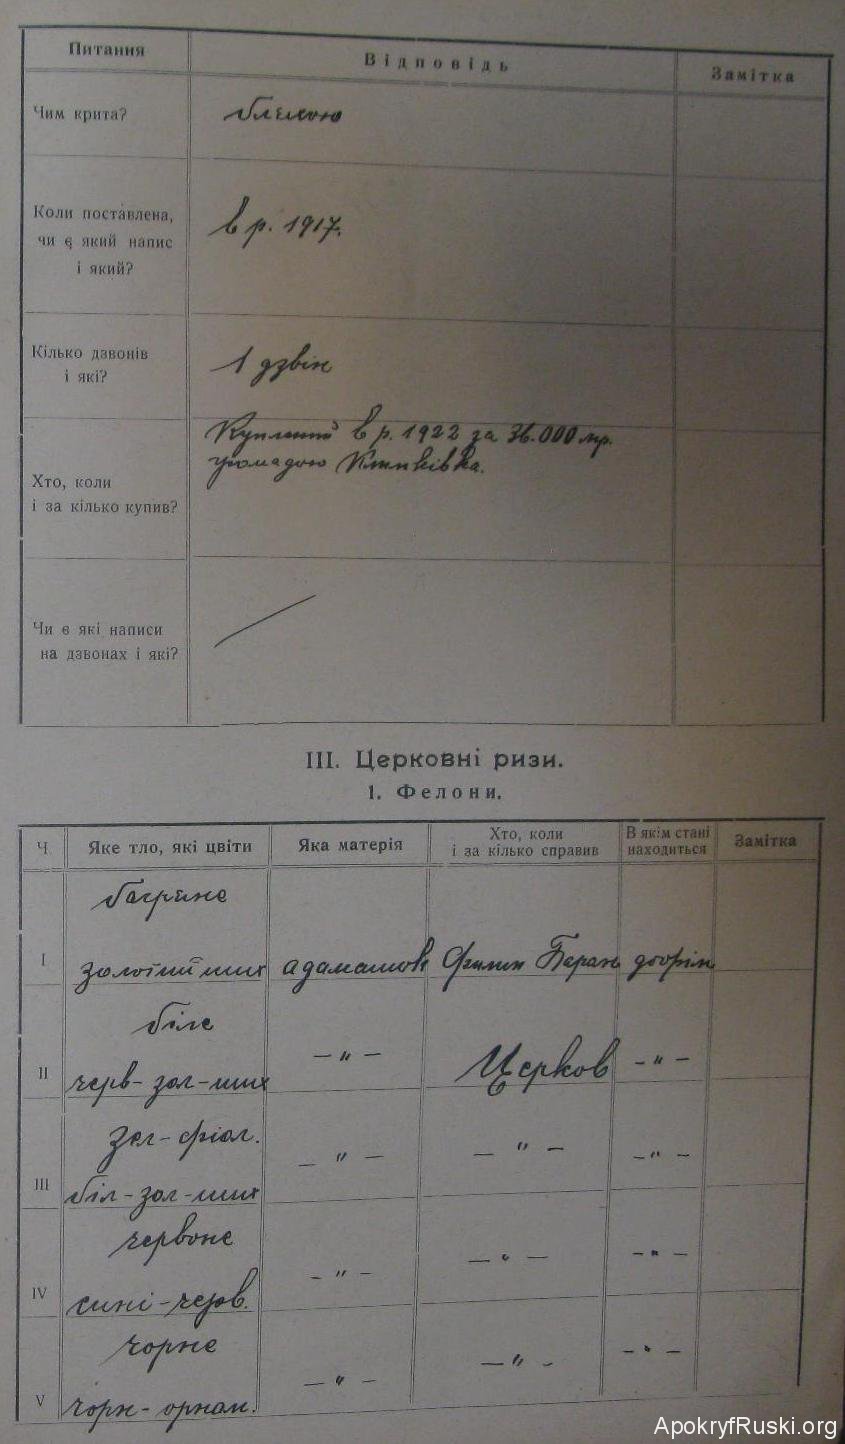 Питання Відповідь Замітка
Чим крита? бляхою
Коли поставлена,
чи є який напис в р. 1917.
і який?
Кілько дзвонів 1 дзвін
і які?
Куплений в р. 1922 за 36.000 мр.
громадою
Хто, коли
і за кілько купив?
Чи є які написи
на дзвонах і які?
III. Церковні ризи.
1. Фелони.
Ч. Яке тло, які цвіти Яка матерія Хто, коли і за кілько справив В якім стані находиться Замітка
багряне
I адамашок Баран добрім
біле
II черв-зол- — " — Церков — " —
зел-фіол.
III біл-зол- — " — — " — — " —
червоне
IV сині-черв. — " — — " — — " —
чорне
V чорн-орнам. — " — — " — — " —
ApokryfRuski.org